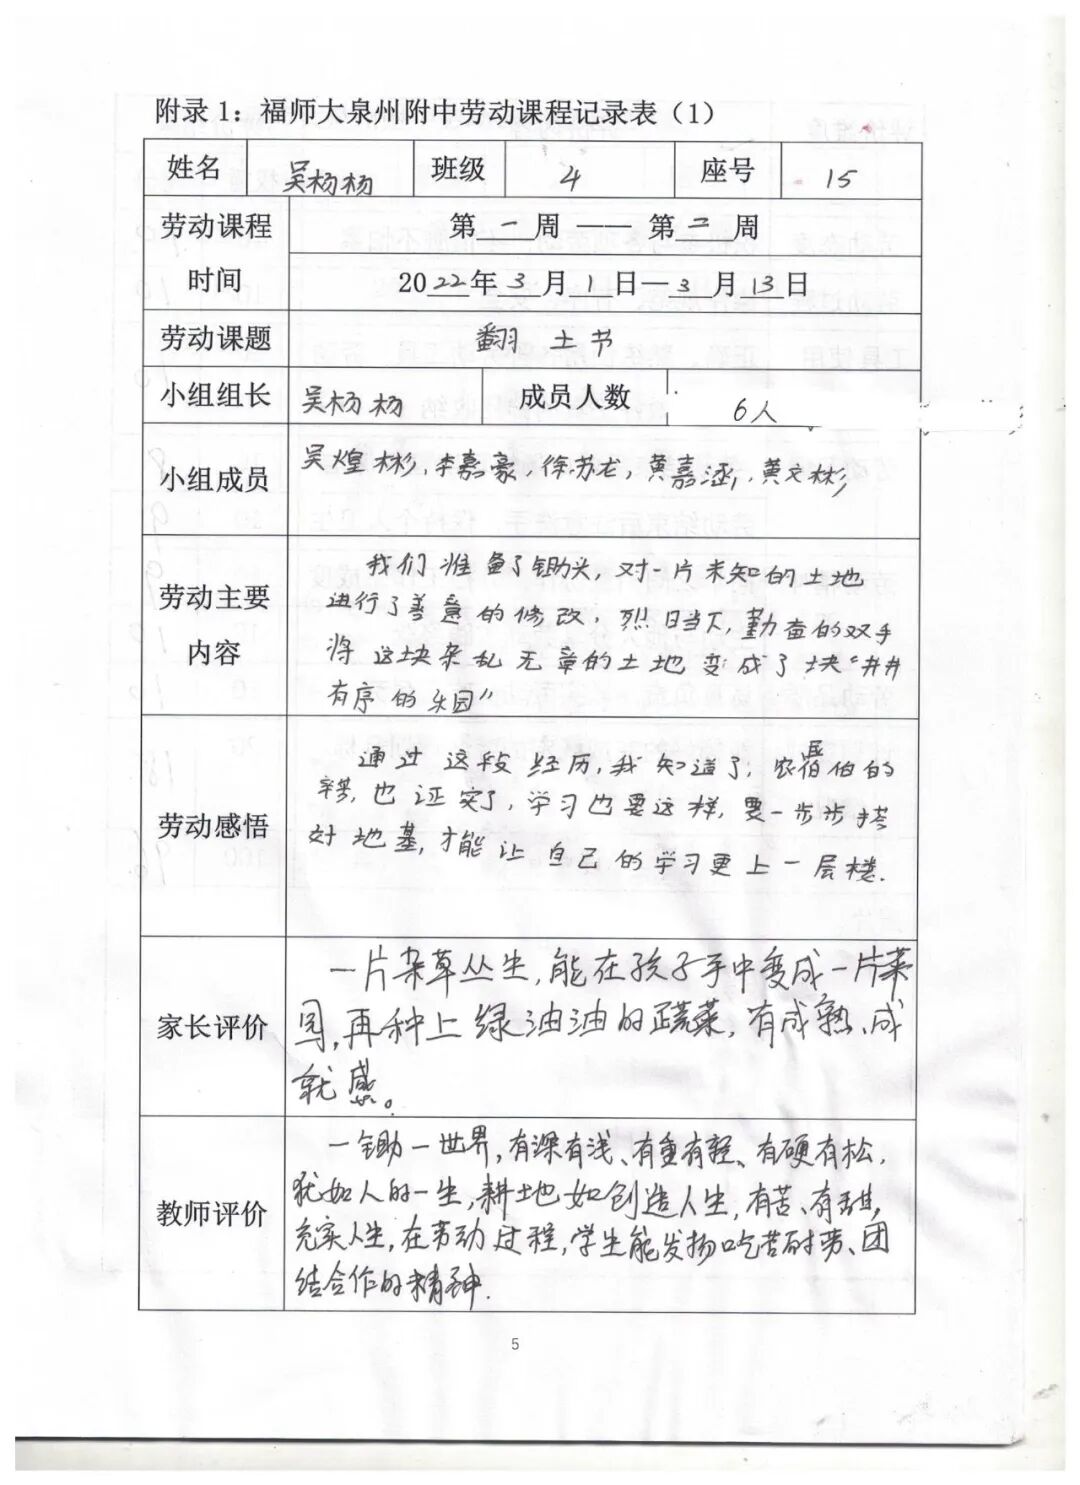 附录1：福师大泉州附中劳动课程记录表（1）
姓名 吴杨杨 班级 4 座号 15
劳动课程时间 第一周——第二周
2022年3月1日—3月13日
劳动课题 翻土节
小组组长 吴杨杨 成员人数 6人
小组成员 吴煌彬，李嘉豪，徐苏龙，黄嘉涵，黄文彬
劳动主要内容
我们准备了锄头，对一片未知的土地
进行了善意的修改，烈日当下，勤奋的双手
将这块杂乱无章的土地变成了块“井井
有序的乐园”
劳动感悟
通过这段经历，我知道了，农民伯伯的
辛劳，也证实了，学习也要这样，要一步步搭
好地基，才能让自己的学习更上一层楼.
家长评价
一片杂草丛生，能在孩子手中变成一片菜
园，再种上绿油油的蔬菜，有成熟、成
就感。
教师评价
一锄一世界，有深有浅、有重有轻、有硬有松，
犹如人的一生，耕地如创造人生，有苦、有甜，
充实人生，在劳动过程，学生能发扬吃苦耐劳、团
结合作的精神.
5